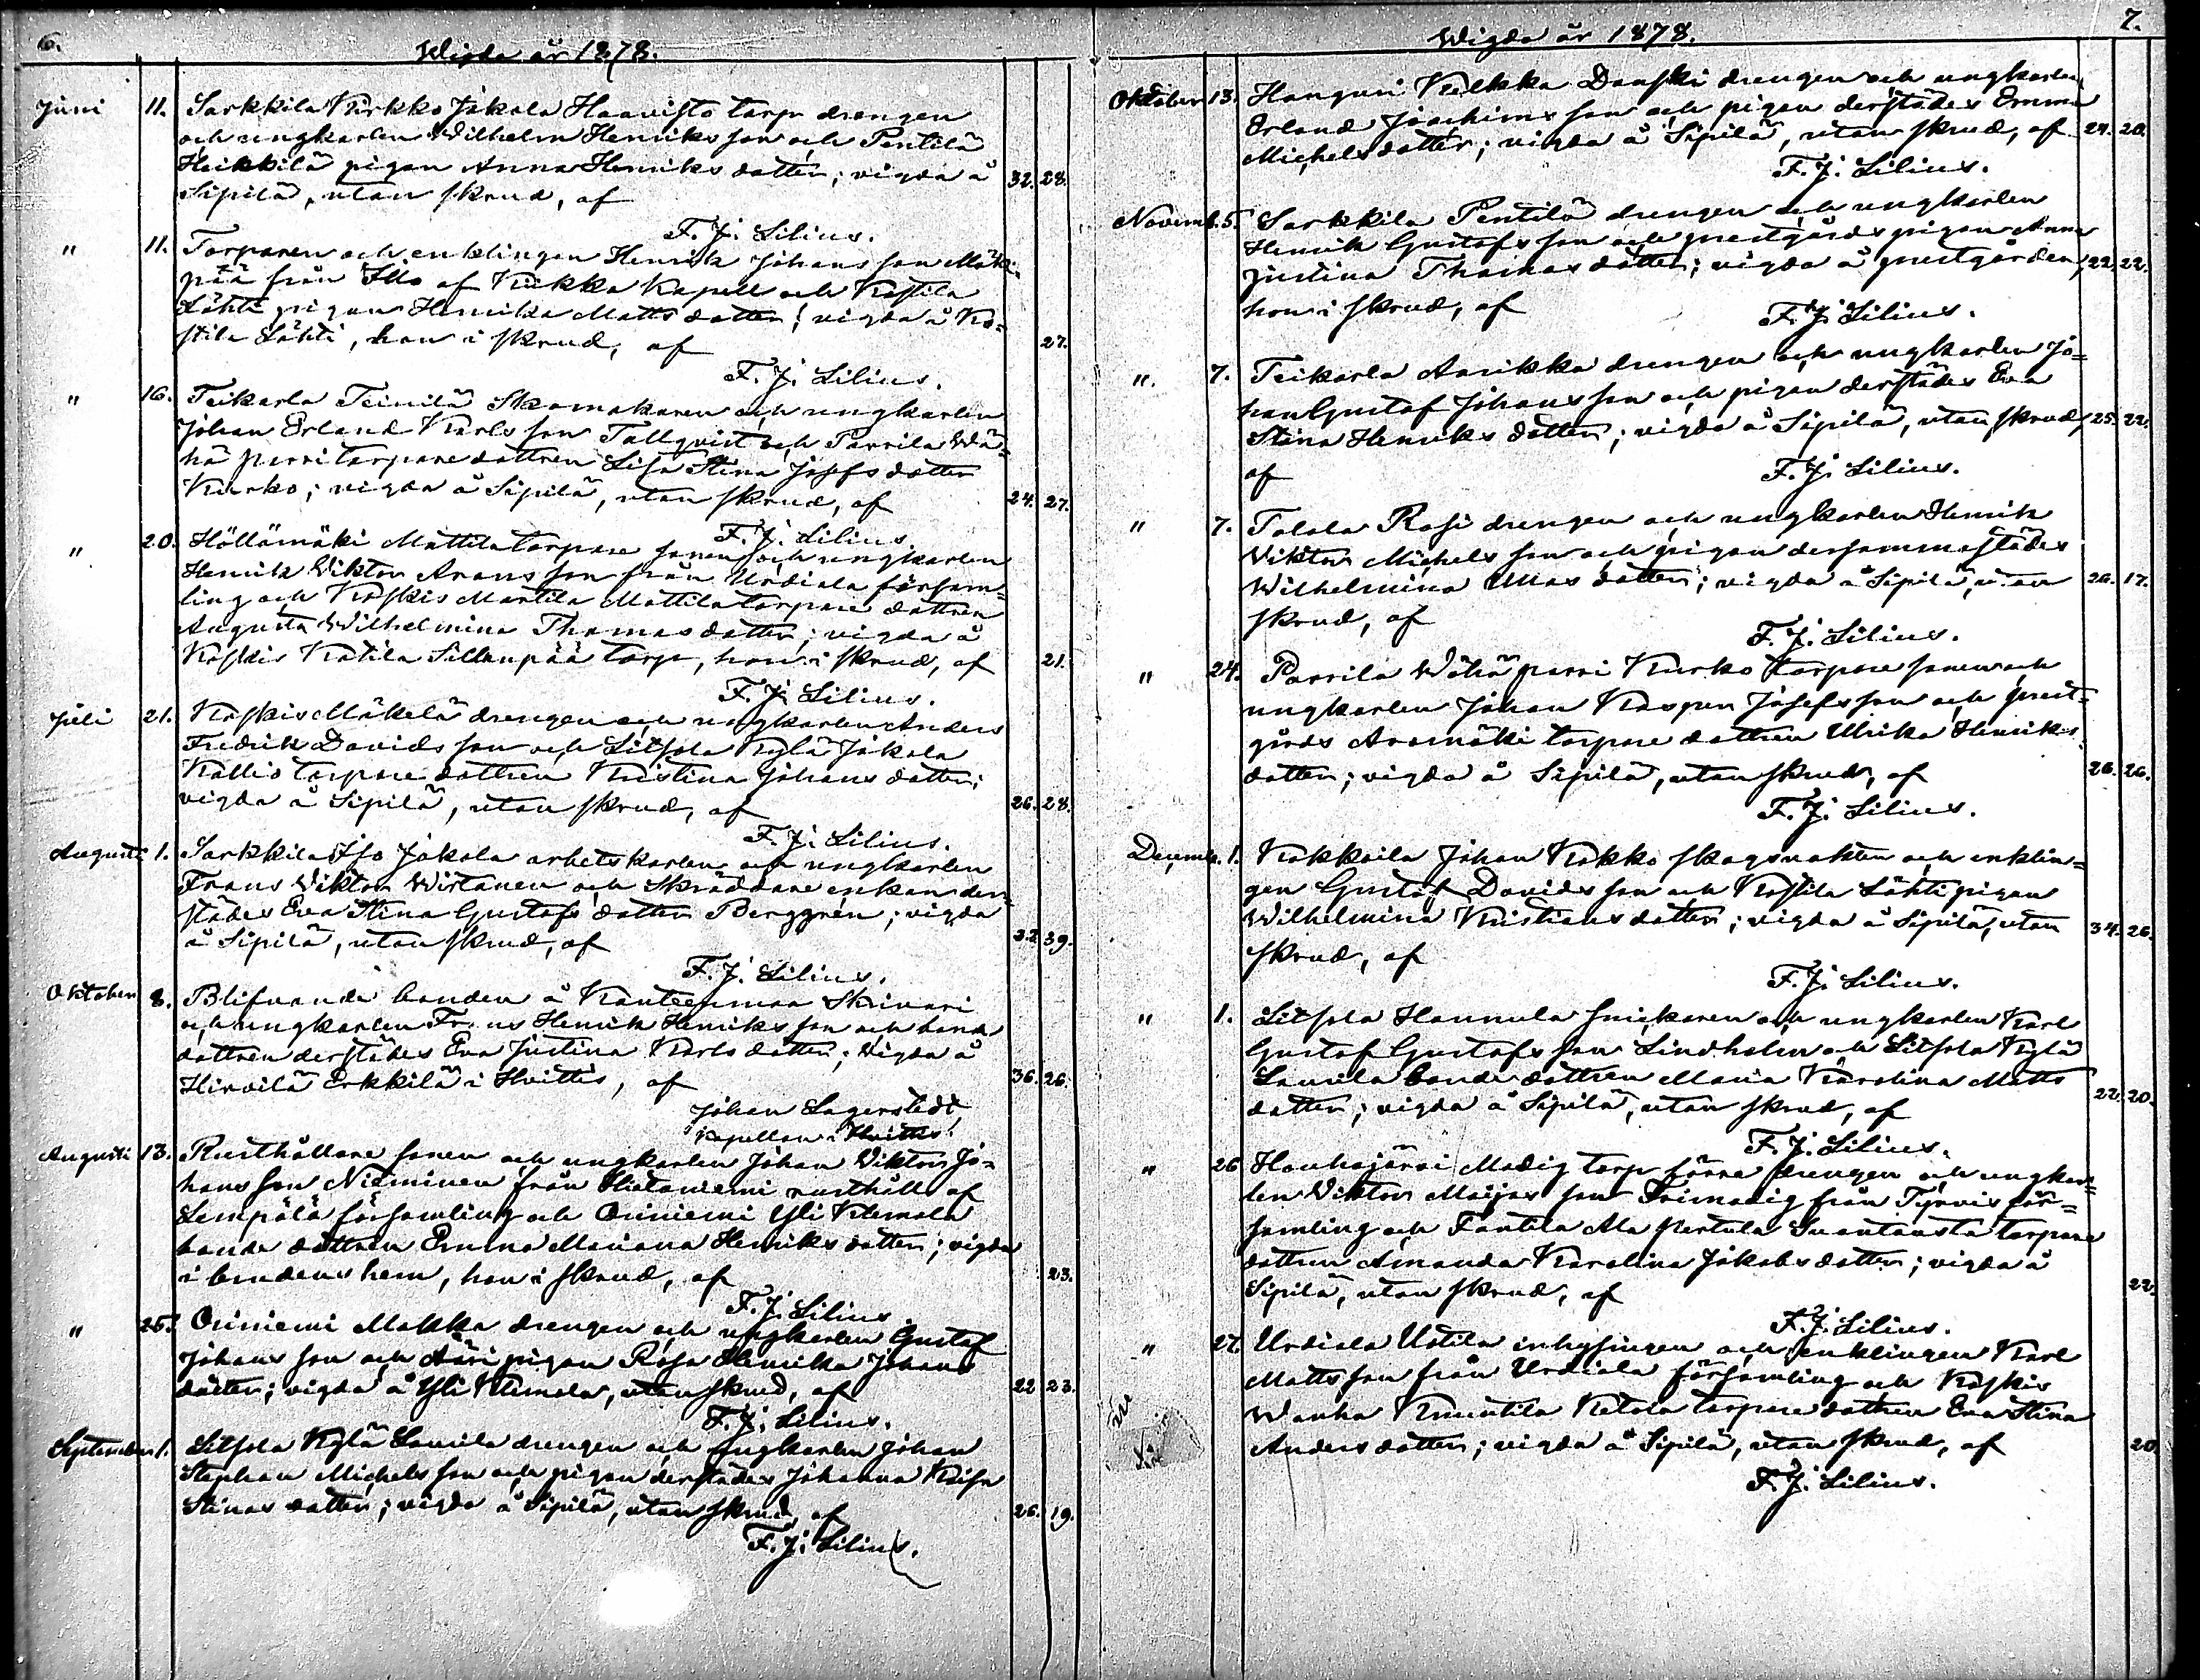 6.
Wigda år 1878.
Juni 11. Sarkkila Kirkko Jakola Haavisto torp drengen
och ungkarlen Wilhelm Henriks son och Pentilä
Heikkilä pigan Anna Henriks dotter; vigda å
Sipilä, utan skrud, af 32. 28.
F. J. Lilius.
" 11. Torparen och enklingen Henrik Johans son Mäki-
pää från Illo af Kiikka Kapell och Kostila
Lähti pigan Henrika Matts dotter; vigda å Ko-
stila Lähti, hon i skrud, af 27.
F. J. Lilius.
" 16. Teikarla Teinilä Skomakaren och ungkarlen
Johan Erland Karls son Tallqvist och Parrila Wä-
hä parri torpare dottren Lisa Stina Josefs dotter
Kurko; vigda å Sipilä, utan skrud, af 24. 27.
F. J. Lilius.
" 20. Höllämäki Mattila torpare sonen och ungkarlen
Henrik Viktor Arans son från Urdiala församl-
ling och Koskis Mattila torpare dottren
Augusta Wilhelmina Thomas dotter; vigda å
Koskis Kotila Sillanpää torp, hon i skrud, af 21.
F. J. Lilius.
Juli 21. Koskis Mäkelä drengen och ungkarlen Anders
Fredrik Davids son och Litsola Kylä Jakola
Kallio torpare dottren Kristina Johans dotter;
vigda å Sipilä, utan skrud, af 26. 28.
F. J. Lilius.
Augusti 1. Sarkkila Iso Jakola arbetskarlen och ungkarlen
Frans Viktor Wirtanen och Skräddare enkan der-
städes Eva Stina Gustafs dotter Berggrén; vigda
å Sipilä, utan skrud, af 39.
F. J. Lilius.
Oktober 8. Blifvande bonden å Kanteenmaa Skinnari
och ungkarlen Frans Henrik Henriks son och bonde
dottren derstädes Eva Justina Karls dotter; vigda å
Hirvilä Erkkilä i Hvittis, af 36. 26.
Johan Lagerstedt
kapellan i Hvittis.
Augusti 13. Rusthållare sonen och ungkarlen Johan Viktor Jo-
hans son Nieminen från Hietaniemi rusthåll af
Lempälä församling och Oriniemi Yli Klemola
bonde dottren Emma Mariana Henriks dotter; vigda
i brudens hem, hon i skrud, af 23.
F. J. Lilius.
" 25. Oriniemi Makka drengen och ungkarlen Gustaf
Johans son och Ääri pigan Rosa Henrika Johans
dotter; vigda å Yli Klemola, utan skrud, af 22 23.
F. J. Lilius.
September 1. Litsola Kylä Laurila drengen och ungkarlen Johan
Stephan Michels son och pigan derstädes Johanna Kaisa
Stinas dotter; vigda å Sipilä, utan skrud, af 26. 19.
F. J. Lilius.
7.
Wigda år 1878.
Oktober 13. Hanguni Kulkka Danski drengen och ungkarlen
Erland Joachims son och pigan derstädes Emma
Michels dotter; vigda å Sipilä, utan skrud, af 24. 20.
F. J. Lilius.
Novemb. 5. Sarkkila Pentilä drengen och ungkarlen
Henrik Gustafs son och prestgårds pigan Anna
Justina Thomas dotter; vigda å prestgården, 22. 22.
hon i skrud, af
F. J. Lilius.
" 7. Teikarla Anikka drengen och ungkarlen Jo-
han Gustaf Johans son och pigan derstädes Eva
Stina Henriks dotter; vigda å Sipilä, utan skrud, 25. 22.
af F. J. Lilius.
" 7. Talala Rasi drengen och ungkarlen Henrik
Viktor Michels son och pigan dersammastädes
Wilhelmina Ullas dotter; vigda å Sipilä, utan 26. 17.
skrud, af
F. J. Lilius.
" 24. Parrila Wähä parri Kurko torpare sonen och
ungkarlen Johan Kasper Josefs son och prest-
gårds Aromäki torpare dottren Ulrika Henriks
dotter; vigda å Sipilä, utan skrud, af 26. 26.
F. J. Lilius.
Decemb. 1. Kokkoila Johan Kokko skogsvakten och enklin-
gen Gustaf Davids son och Kostila Lähti pigan
Wilhelmina Kristians dotter; vigda å Sipilä, utan 34. 26.
skrud, af
F. J. Lilius.
" 1. Litsola Hannula snickaren och ungkarlen Karl
Gustaf Gustafs son Lindholm och Litsola Kylä
Laurila bonde dottren Maria Karolina Matts
dotter; vigda å Sipilä, utan skrud, af 22. 20.
F. J. Lilius.
" 26 Houhajärvi Modig torp förre drengen och ungkar-
len Viktor Maijas son Frimodig från Tyrvis för-
samling och Tantila Ala Pertula Suontausta torpare
dottren Amanda Karolina Jakobs dotter; vigda å
Sipilä, utan skrud, af 22.
F. J. Lilius.
" 27. Urdiala Uotila inhysingen och enklingen Karl
Matts son från Urdiala församling och Koskis
Wanha Knuutila Ketola torpare dottren Eva Stina
Anders dotter; vigda å Sipilä, utan skrud, af 20
F. J. Lilius.